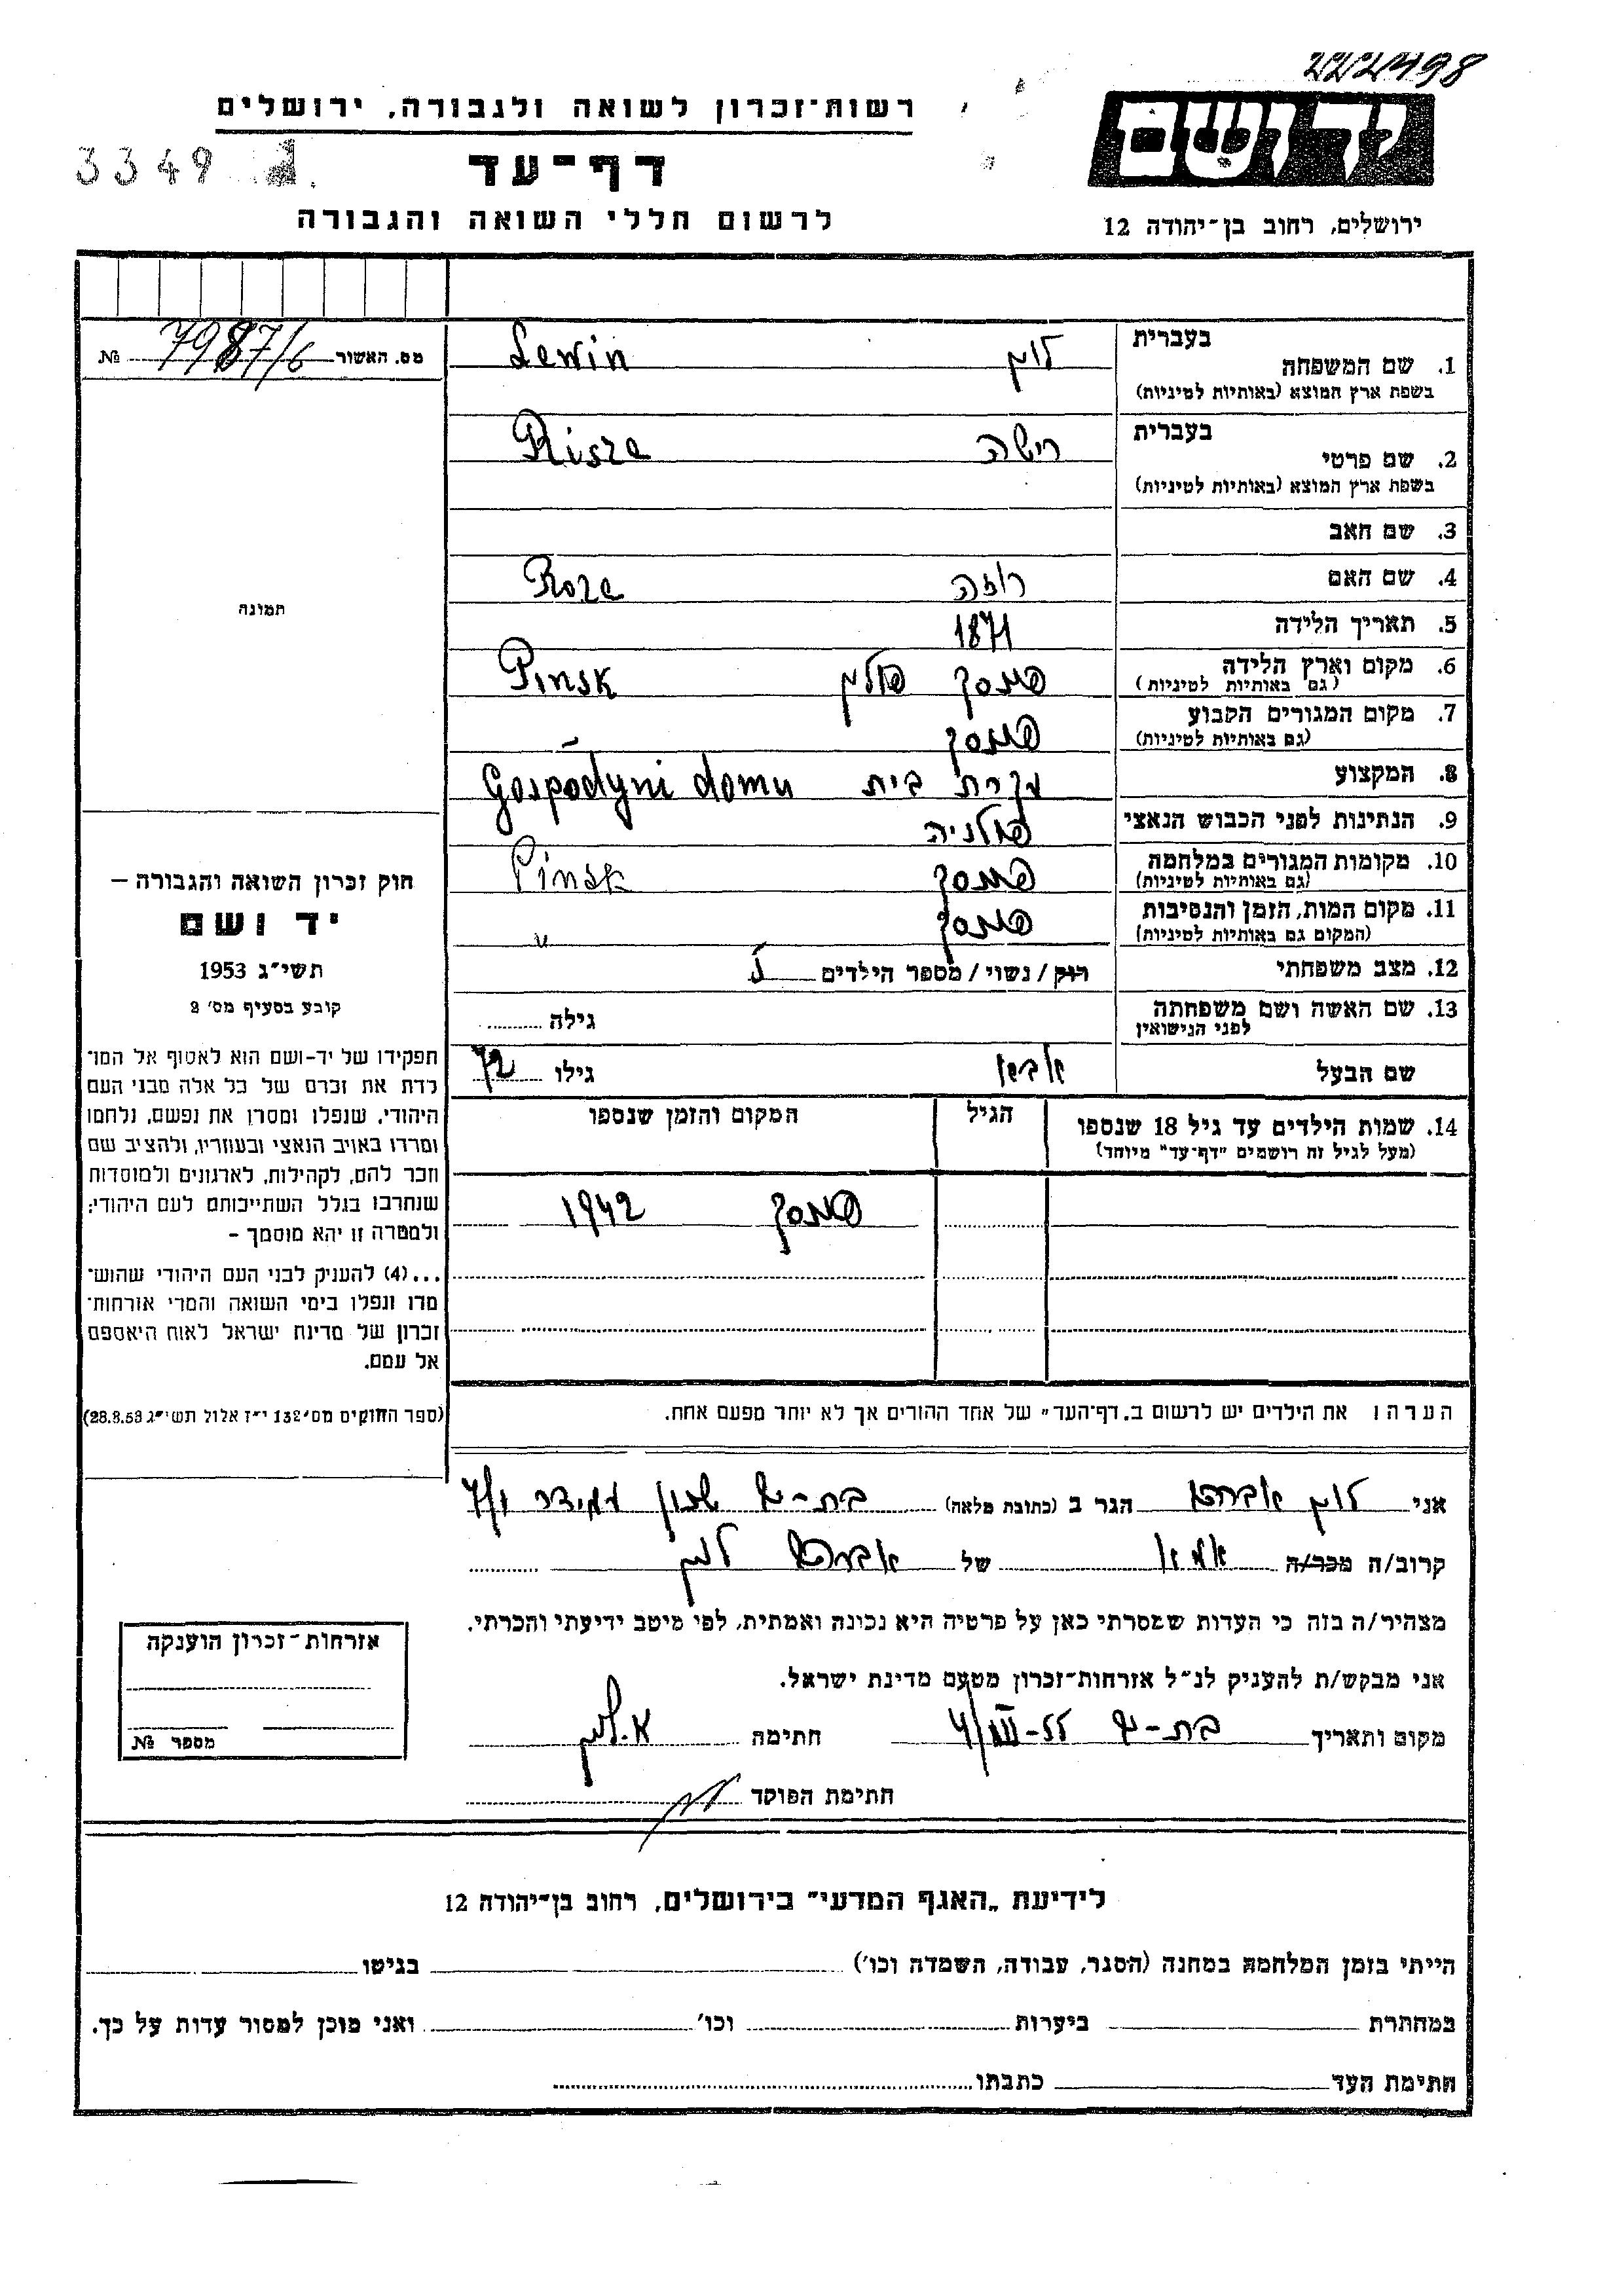 222498
רשות־זכרון לשואה ולגבורה, ירושלים
יד ושם
3349
דף־עד
לרשום חללי השואה והגבורה
ירושלים, רחוב בן־יהודה 12
מס. האשור 7987/6 №
בעברית
1. שם המשפחה לוין Lewin
בשפת ארץ המוצא (באותיות לטיניות)
בעברית
2. שם פרטי רישה Risze
בשפת ארץ המוצא (באותיות לטיניות)
3. שם האב
4. שם האם רוזה Roze
5. תאריך הלידה 1871
6. מקום וארץ הלידה פינסק פולין Pinsk
(גם באותיות לטיניות)
7. מקום המגורים הקבוע פינסק
(גם באותיות לטיניות)
8. המקצוע עקרת בית Gospodyni domu
9. הנתינות לפני הכבוש הנאצי פולניה
10. מקומות המגורים במלחמה פינסק Pinsk
(גם באותיות לטיניות)
11. מקום המות, הזמן והנסיבות פינסק "
(המקום גם באותיות לטיניות)
12. מצב משפחתי רוק / נשוי / מספר הילדים
13. שם האשה ושם משפחתה גילה
לפני הנישואין
שם הבעל גילו 72
14. שמות הילדים עד גיל 18 שנספו הגיל המקום והזמן שנספו
(מעל לגיל זה רושמים "דף־עד" מיוחד)
פינסק 1942
הערה: את הילדים יש לרשום ב„דף־העד" של אחד ההורים אך לא יותר מפעם אחת.
תמונה
חוק זכרון השואה והגבורה –
יד ושם
תשי"ג 1953
קובע בסעיף מס' 2
תפקידו של יד-ושם הוא לאסוף אל המו־
לדת את זכרם של כל אלה מבני העם
היהודי, שנפלו ומסרו את נפשם, נלחמו
ומרדו באויב הנאצי ובעוזריו, ולהציב שם
וזכר להם, לקהילות, לארגונים ולמוסדות
שנחרבו בגלל השתייכותם לעם היהודי;
ולמטרה זו יהא מוסמך –
...(4) להעניק לבני העם היהודי שהוש־
מדו ונפלו בימי השואה והמרי אזרחות־
זכרון של מדינת ישראל לאות היאספם
אל עמם.
(ספר החוקים מס' 132 י"ז אלול תשי"ג 28.8.53)
אני לוין אברהם הגר ב (כתובת מלאה) בת-ים שכון עמידר
קרוב/ה מכר/ה של אברהם לוין
מצהיר/ה בזה כי העדות שמסרתי כאן על פרטיה היא נכונה ואמתית, לפי מיטב ידיעתי והכרתי.
אני מבקש/ת להעניק לנ"ל אזרחות־זכרון מטעם מדינת ישראל.
מקום ותאריך בת-ים חתימה א. לוין
חתימת הפוקד
אזרחות־זכרון הוענקה
מספר №
לידיעת „האגף המדעי" בירושלים, רחוב בן־יהודה 12
הייתי בזמן המלחמה במחנה (הסגר, עבודה, השמדה וכו') בגיטו
במחתרת ביערות וכו' ואני מוכן למסור עדות על כך.
חתימת העד כתבתו